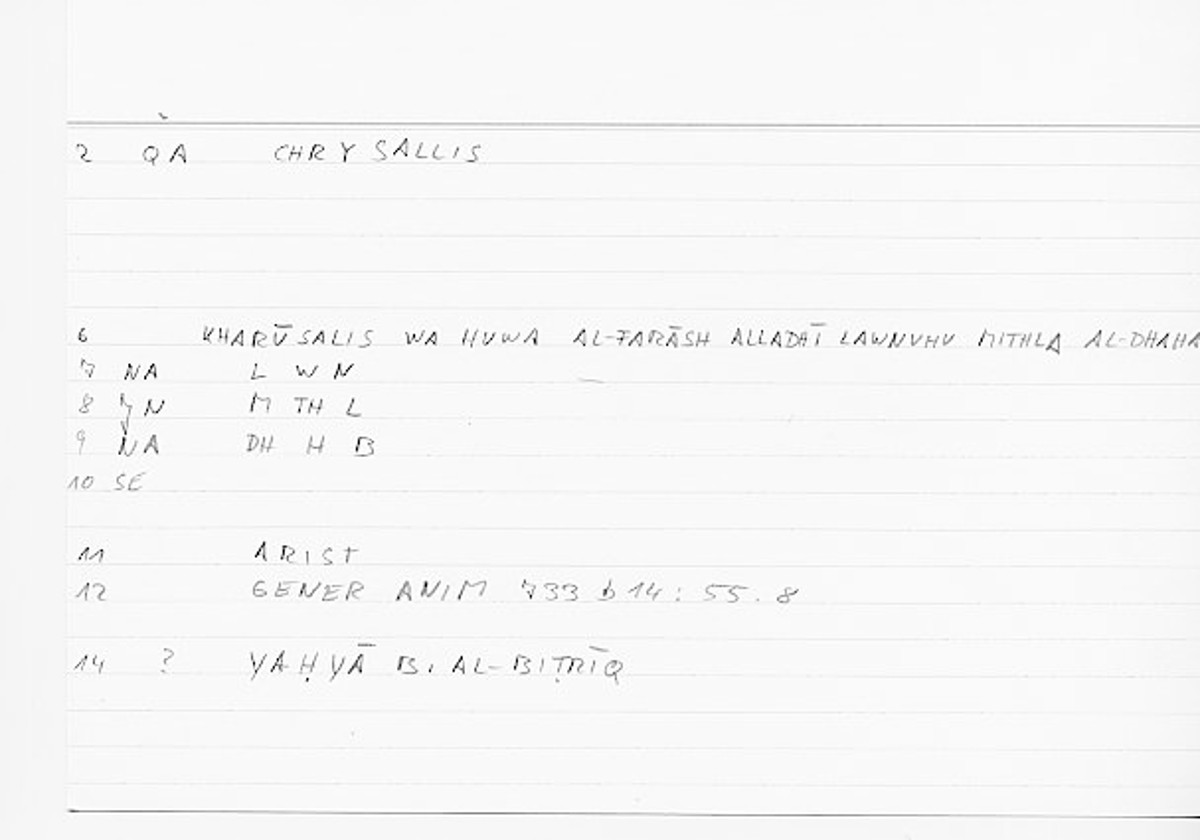 2 QA CHRYSALLIS
6 KHARŪSALIS WA HUWA AL-FARĀSH ALLADHĪ LAWNUHU MITHLA AL-DHAHA
7 NA L W N
8 JN M TH L
9 NA DH H B
10 SE
11 ARIST
12 GENER ANIM 733 b 14 : 55.8
14 ? YAḤYĀ B. AL-BIṬRĪQ